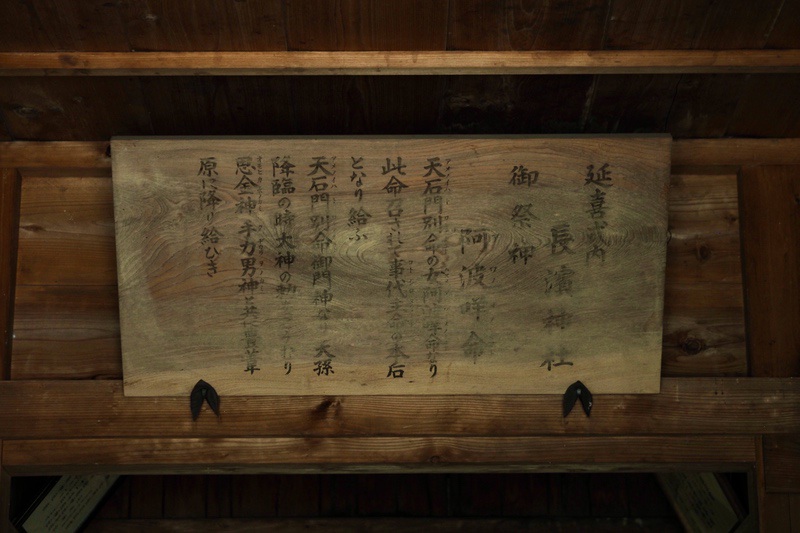 延喜式内
長濱神社
御祭神
阿波咩命
天石門別命の女阿波咩命なり
此命乃
事代主命の本后
となり給ふ
天石門別命御門神なり天孫
降臨の時大神の勅をかむり
思金神手力男神と共に
原に降り給ひき